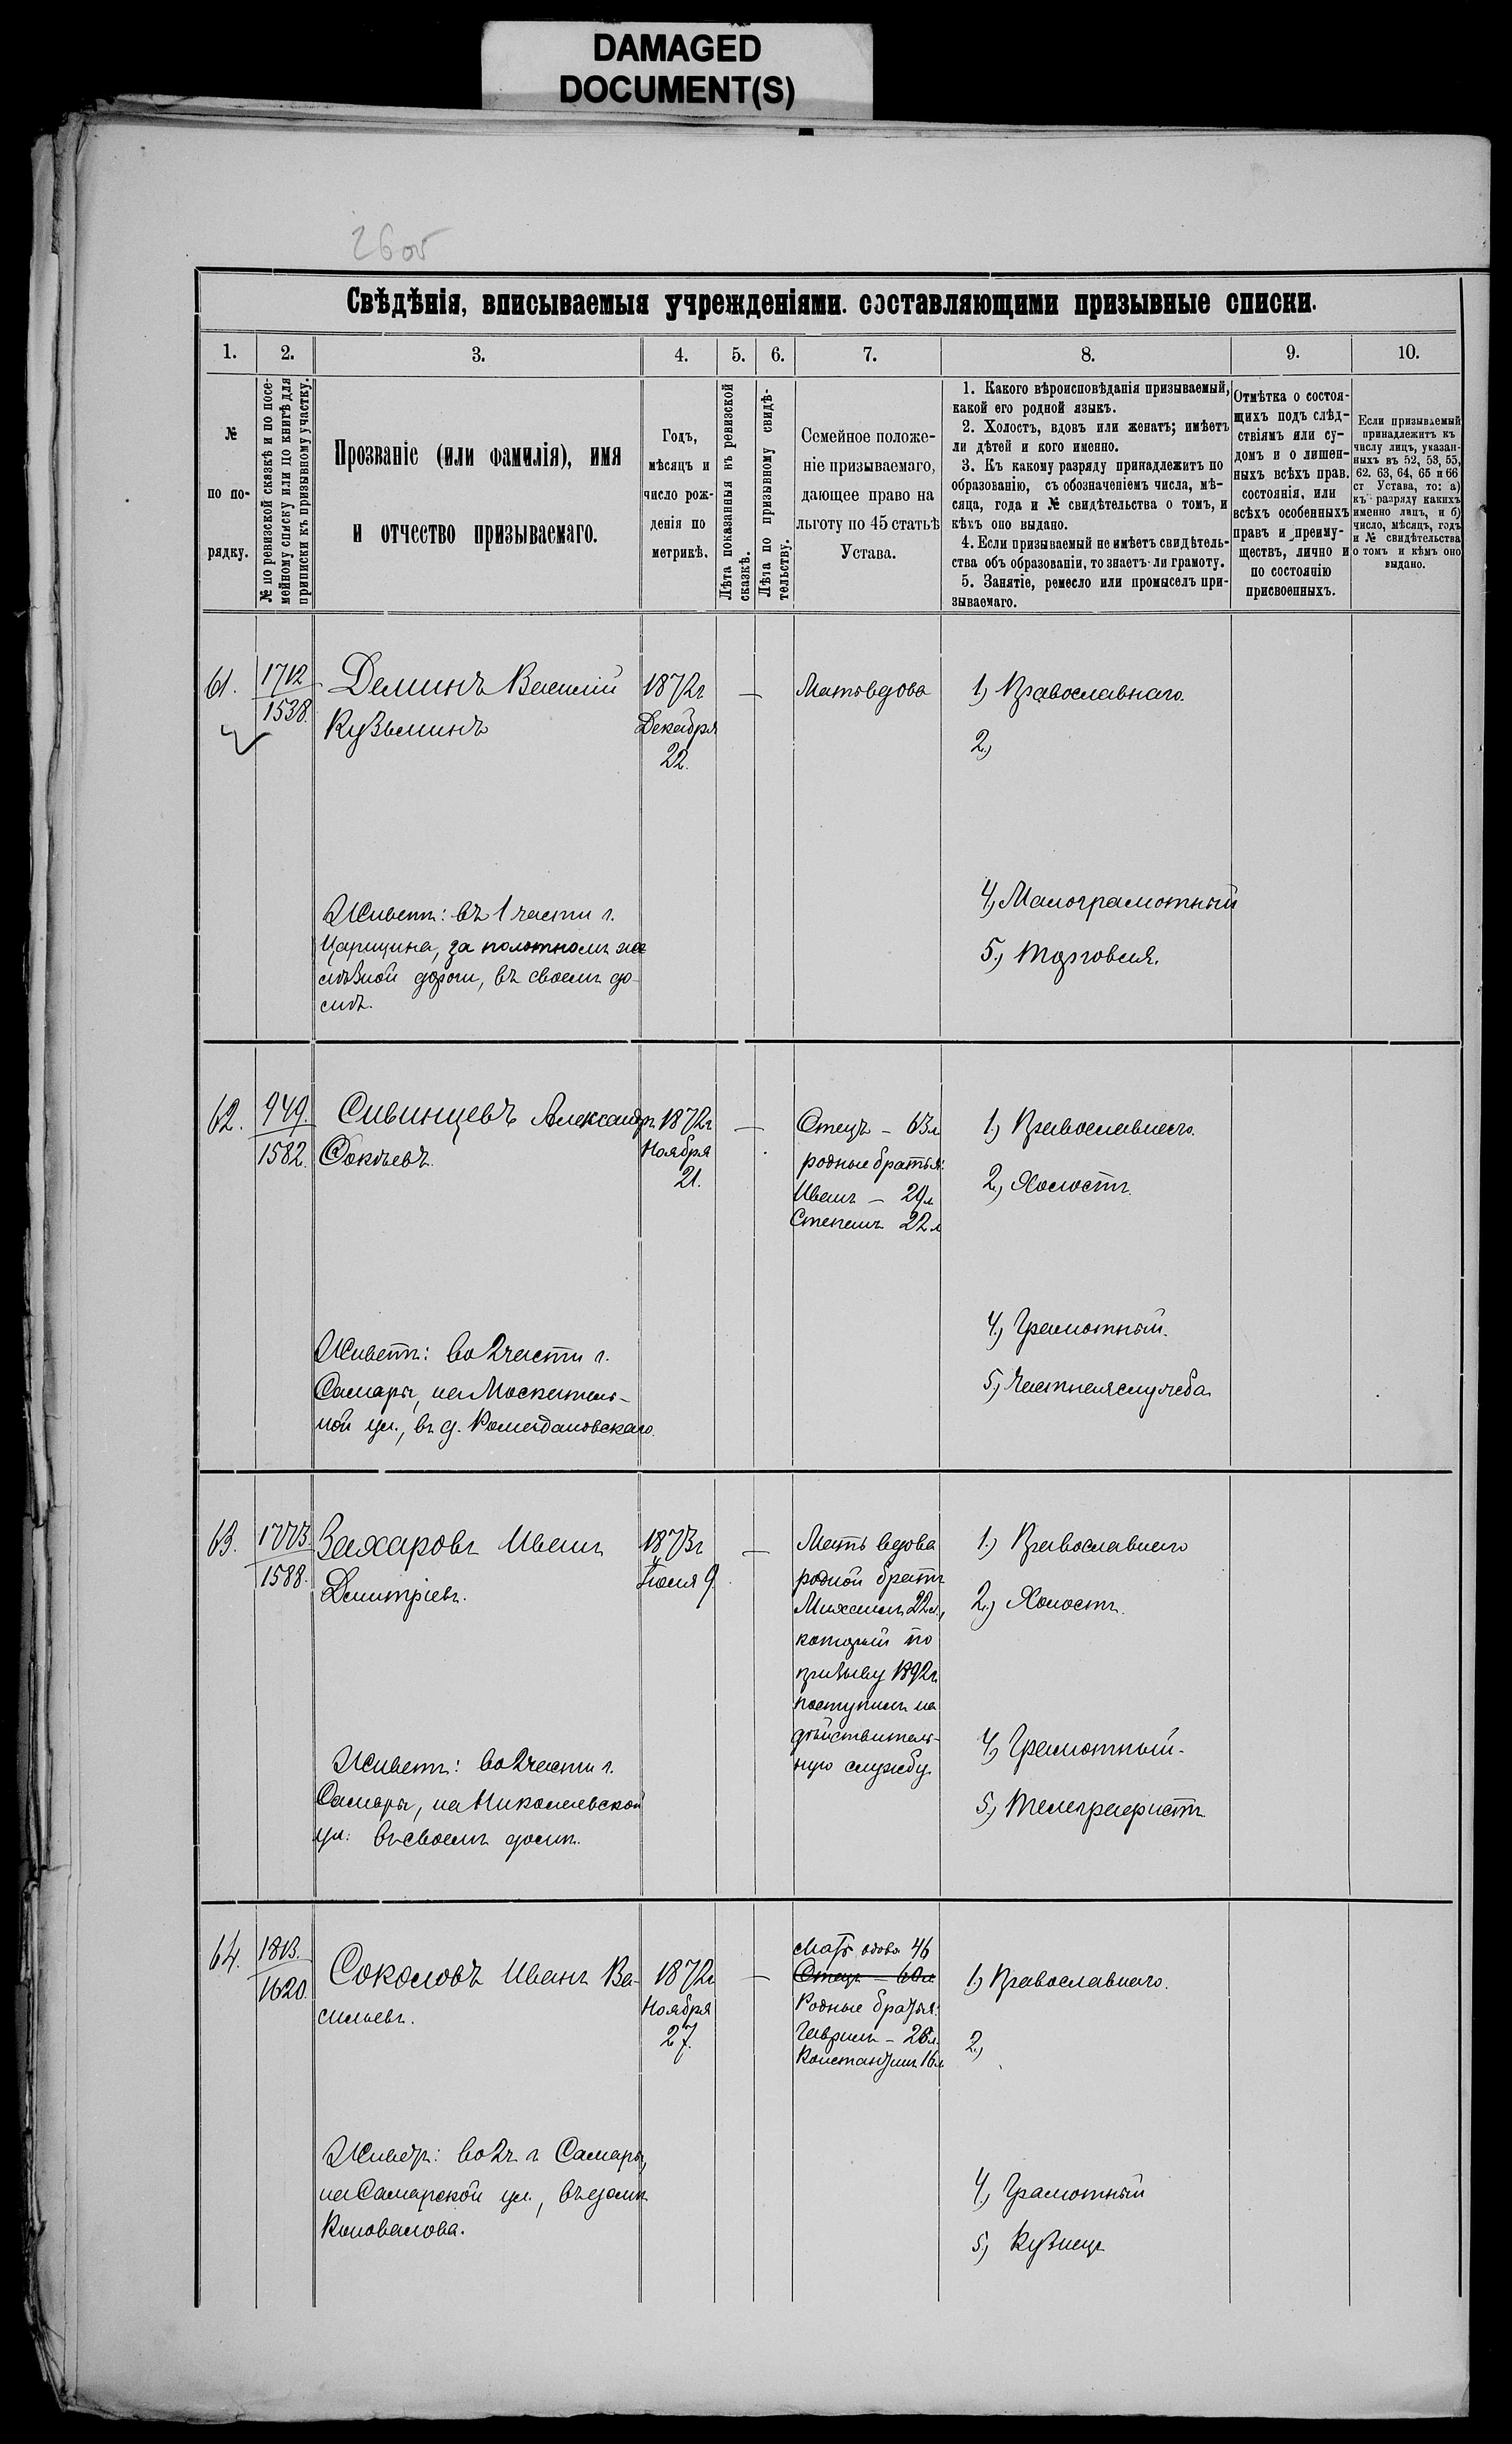 DAMAGED
DOCUMENT(S)
26об
Свѣдѣнія, вписываемыя учрежденіями. составляющими призывные списки.
1. 2. 3. 4. 5. 6. 7. 8. 9. 10.
№
по по-
рядку.
№ по ревизской сказкѣ и по посе-
мейному списку или по книгѣ для
приписки къ призывному участку.
Прозваніе (или фамилія), имя
и отчество призываемаго.
Годъ,
мѣсяцъ и
число рож-
денія по
метрикѣ.
Лѣта показанныя въ ревизской
сказкѣ.
Лѣта по призывному свидѣ-
тельству.
Семейное положе-
ніе призываемаго,
дающее право на
льготу по 45 статьѣ
Устава.
1. Какого вѣроисповѣданія призываемый,
какой его родной языкъ.
2. Холостъ, вдовъ или женатъ; имѣетъ
ли дѣтей и кого именно.
3. Къ какому разряду принадлежитъ по
образованію, съ обозначеніемъ числа, мѣ-
сяца, года и № свидѣтельства о томъ, и
кѣмъ оно выдано.
4. Если призываемый не имѣетъ свидѣтель-
ства объ образованіи, то знаетъ-ли грамоту.
5. Занятіе, ремесло или промыселъ при-
зываемаго.
Отмѣтка о состоя-
щихъ подъ слѣд-
ствіямъ или су-
домъ и о лишен-
ныхъ всѣхъ прав.
состоянія, или
всѣхъ особенныхъ
правъ и преиму-
ществъ, лично и
по состоянію
присвоенныхъ.
Если призываемый
принадлежитъ къ
числу лицъ, указан-
ныхъ въ 52, 53, 55,
62. 63, 64, 65 и 66
ст Устава, то: а)
къ разряду какихъ
именно лицъ, и б)
число, мѣсяцъ, годъ
и № свидѣтельства
о томъ и кѣмъ оно
выдано.
61.
1712
1538.
Деминъ Василій
Кузьминъ
1872г
Декабря
22.
—
Мать вдова
1) Православнаго.
2)
Живетъ: въ 1 части г.
Царицына, за полотномъ же
лѣзной дороги, въ своемъ до-
мѣ.
4) Малограмотный
5.) Торговля.
62.
949.
1582.
Сивинцевъ Александръ
Фокѣевъ
1872г
Ноября
21.
—
Отецъ — 63л
родные братья:
Иванъ — 29л
Степанъ 22л
1.) Православнаго.
2.) Холостъ.
Живетъ: во 2 части г.
Самары, на Москатель-
ной ул., въ д. Ромадановскаго.
4.) Грамотный.
5.) Частная служба
63.
1773.
1588.
Захаровъ Иванъ
Дмитріевъ.
1873г
Іюля 9.
—
Мать вдова
родной братъ
Михаилъ 22л,
который по
призыву 1892г
поступилъ на
дѣйствитель-
ную службу.
1.) Православнаго
2.) Холостъ.
Живетъ: во 2 части г.
Самары, на Николаевской
ул: въ своемъ домѣ.
4.) Грамотный.
5.) Телеграфистъ.
64.
1813.
1620.
Соколовъ Иванъ Ва-
сильевъ.
1872г
Ноября
27.
—
Мать вдова 46
Отецъ — 60л
Родные братья:
Гавриилъ — 26л.
Константинъ 16л
1) Православнаго.
2.)
Живетъ: во 2ч. г Самары,
на Самарской ул., въ домѣ
Коновалова.
4.) Грамотный
5.) Кузнецъ